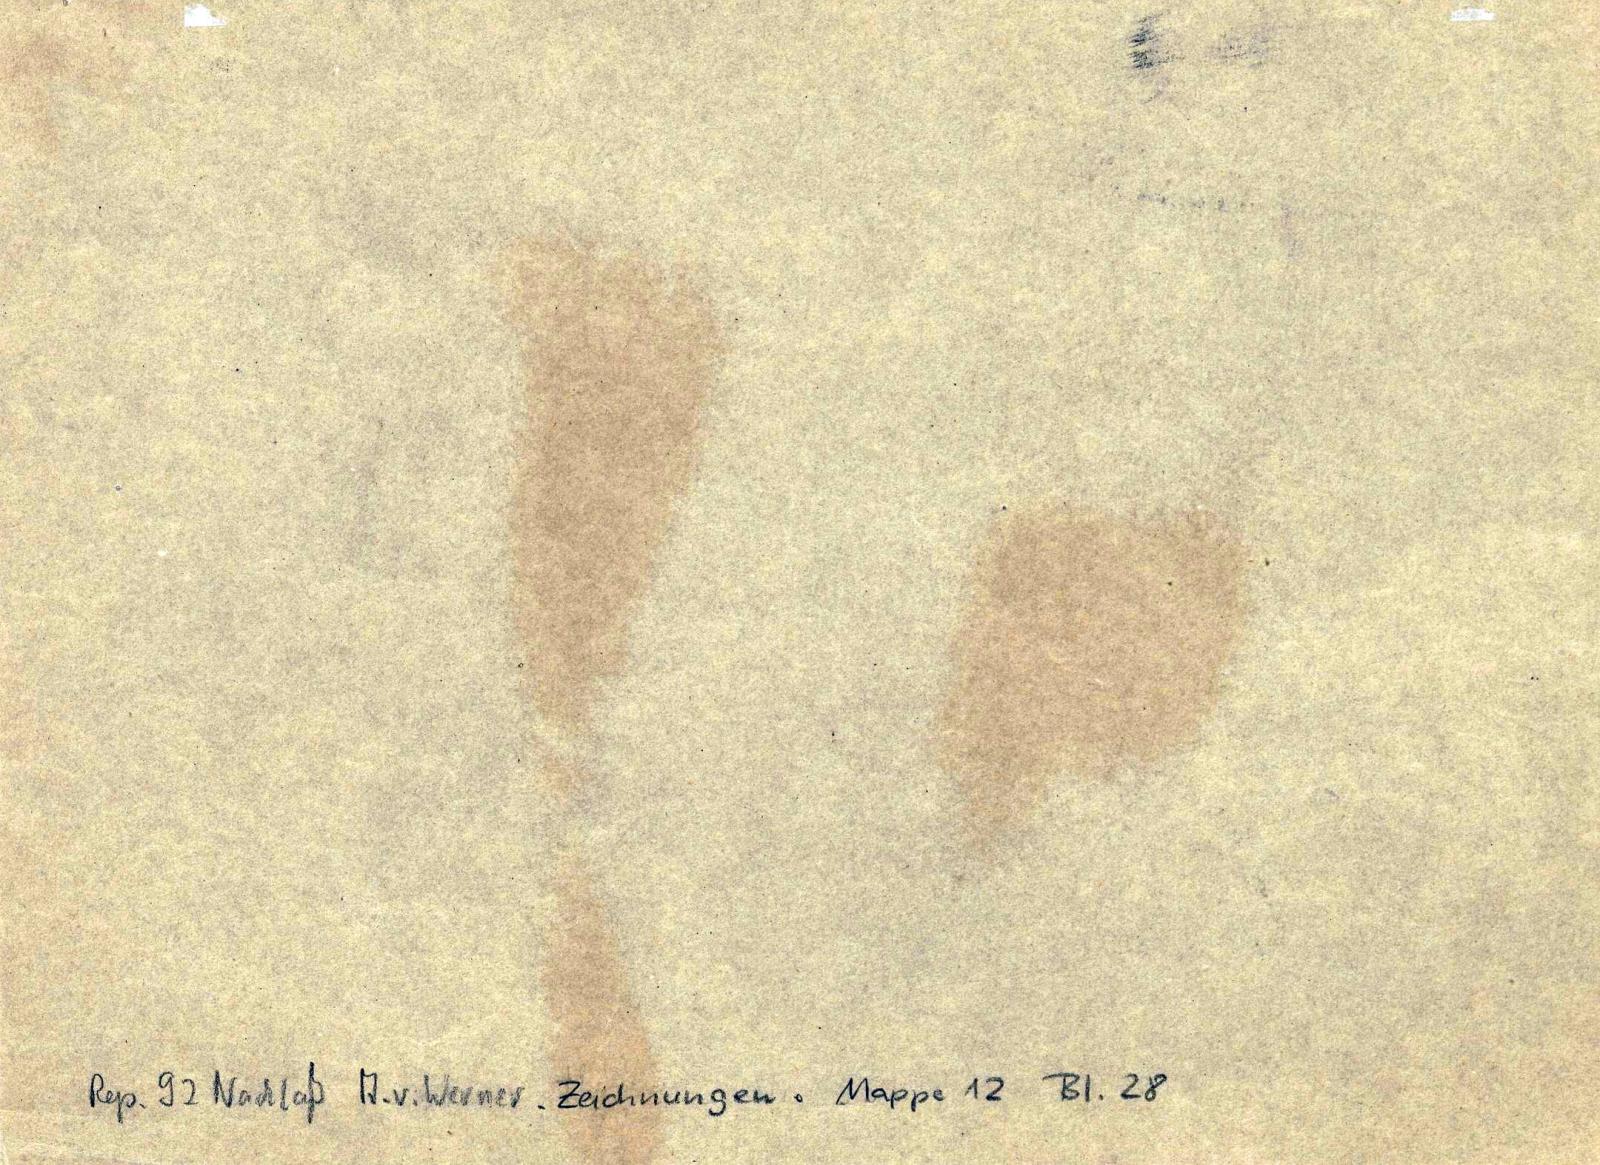 Rep. 92 Nachlaß A.v.Werner. Zeichnungen. Mappe 12 Bl. 28